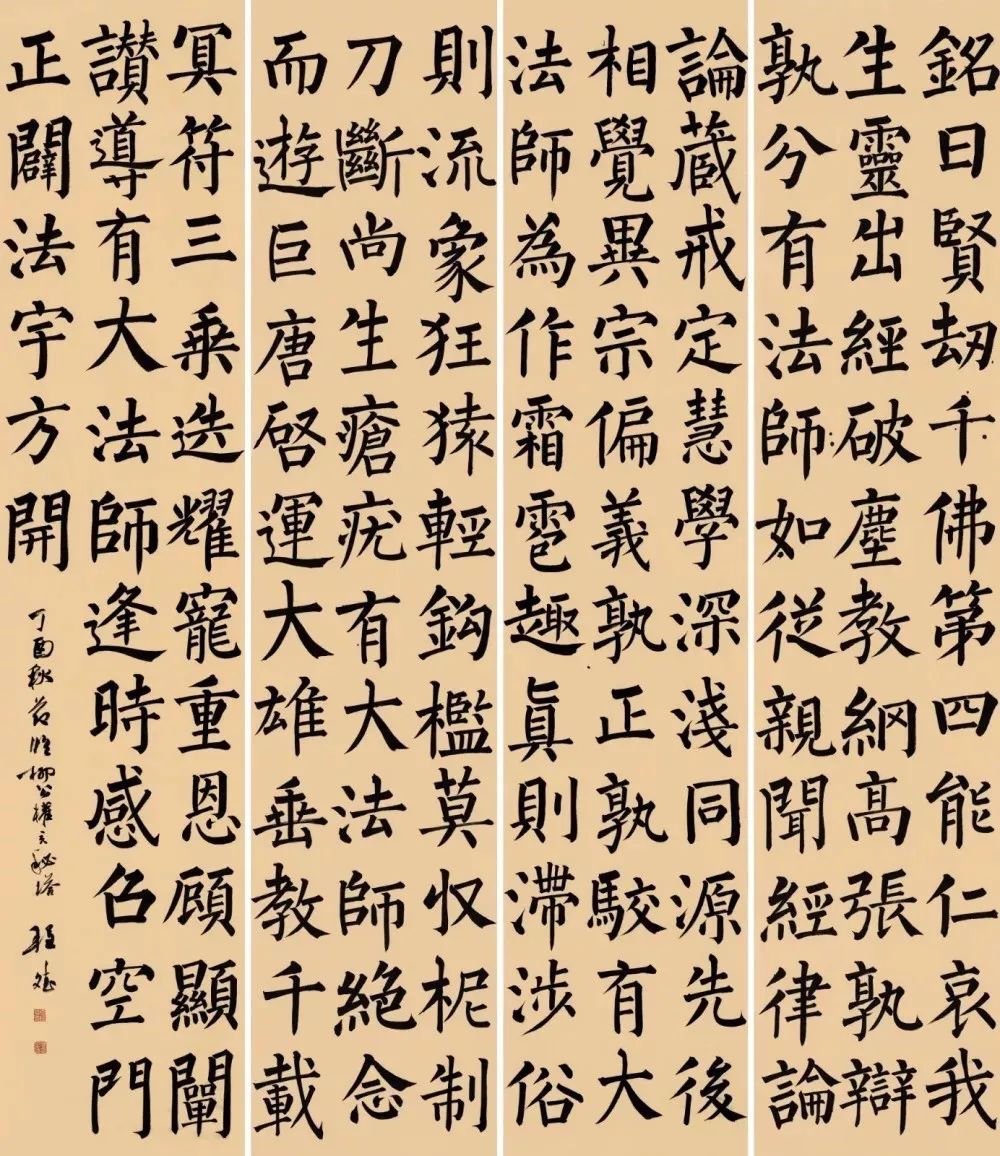 銘曰賢劫千佛第四能仁哀我
生靈出經破塵教網高張孰辯
孰分有法師如從親聞經律論
論蔵戒定慧學深淺同源先後
相覺異宗偏義孰正孰駮有大
法師為作霜雹趣真則滯涉俗
則流象狂猿輕鈎檻莫収柅制
刀斷尚生瘡疣有大法師絕念
而遊巨唐啓運大雄垂教千載
冥符三乗迭耀寵重恩顧顯闡
讃導有大法師逢時感召空門
正闢法宇方開
丁酉秋臨柳公權玄秘塔